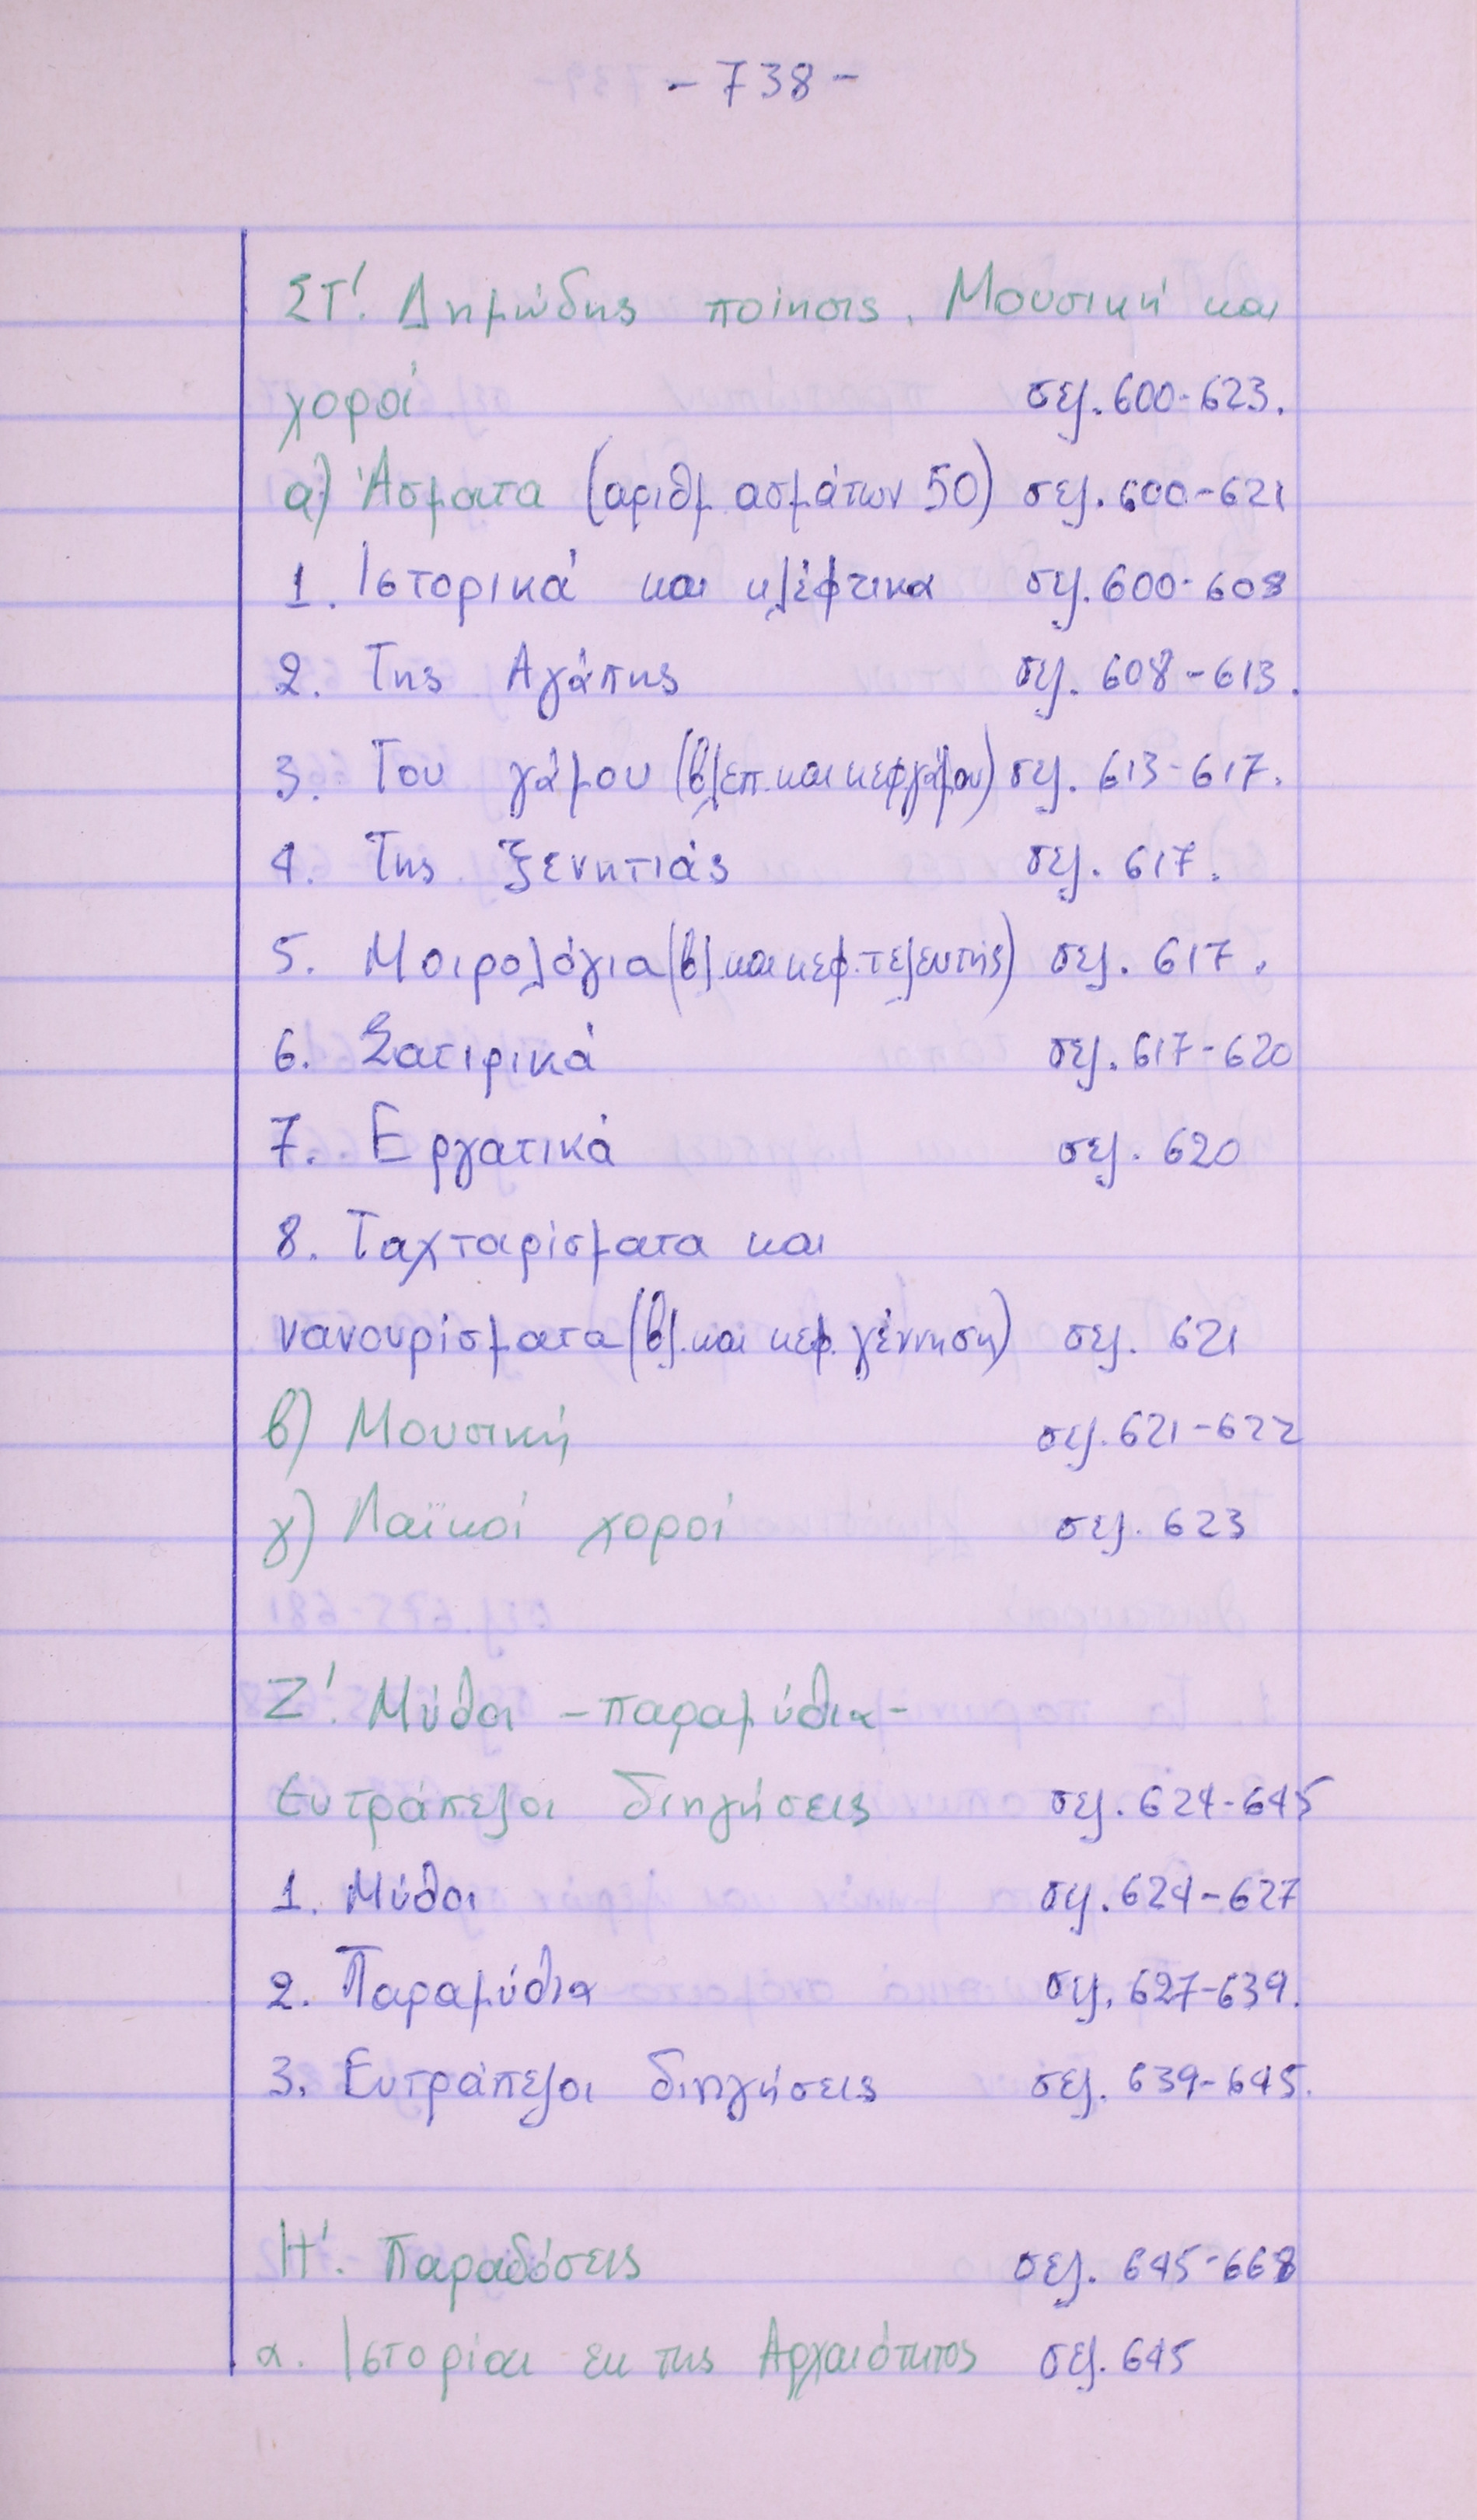 - 738 -
ΣΤ'. Δημώδης ποίησις. Μουσική και
χοροί σελ. 600-623.
α) Άσματα (αριθμ. ασμάτων 50) σελ. 600-621
1. Ιστορικά και κλέφτικα σελ. 600-608
2. Της Αγάπης σελ. 608-613.
3. Του γάμου (βλεπ. και κεφ γάμου) σελ. 613-617.
4. Της ξενητιάς σελ. 617.
5. Μοιρολόγια (βλ. και κεφ. τελευτής) σελ. 617.
6. Σατιρικά σελ. 617-620
7. Εργατικά σελ. 620
8. Ταχταρίσματα και
νανουρίσματα (βλ. και κεφ. γέννηση) σελ. 621
β) Μουσική σελ. 621-622
γ) Λαϊκοί χοροί σελ. 623
Ζ'. Μύθοι - παραμύθια -
Ευτράπελοι διηγήσεις σελ. 624-645
1. Μύθοι σελ. 624-627
2. Παραμύθια σελ. 627-639.
3. Ευτράπελοι διηγήσεις σελ. 639-645.
Η'. Παραδόσεις σελ. 645-668
α. Ιστορίαι εκ της Αρχαιότητος σελ. 645